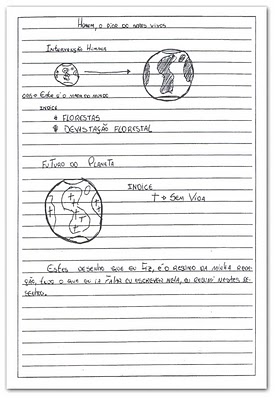 Homem, o pior do seres vivos
Intervenção Humana
caso Este é o mapa do mundo
Indice
Florestas
Devastação Florestal
Futuro do Planeta
Indice
† → Sem Vida
Estes desenho que eu fiz, é o resumo da minha reda-
ção, tudo o que eu ia falar eu escrever nela, eu resumi nestes de-
senho.